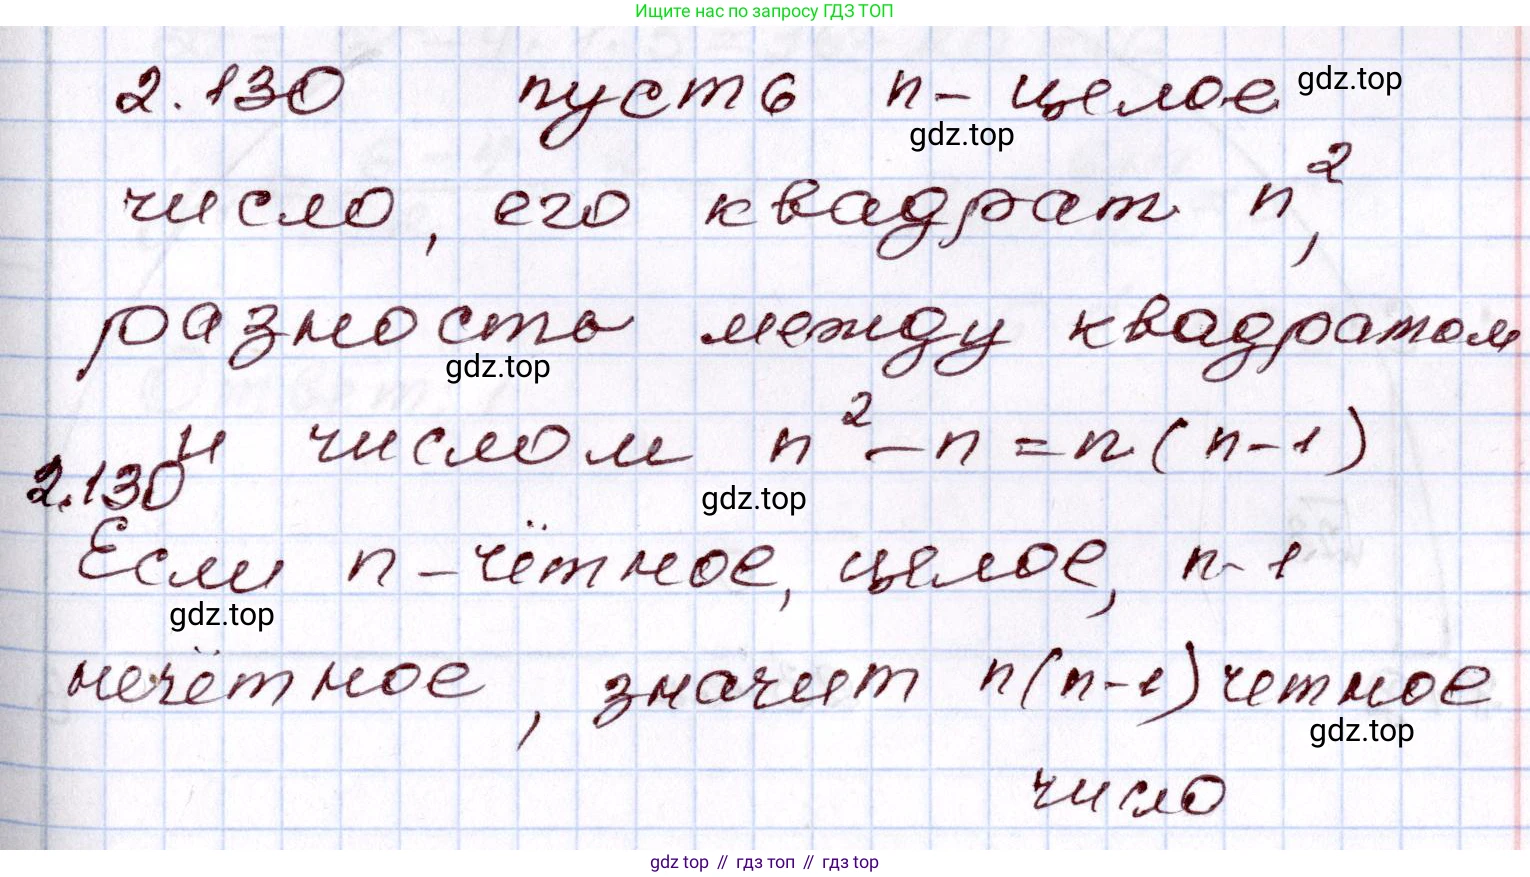 Ищите нас по запросу ГДЗ ТОП
2.130 пусть n - целое gdz.top
gdz.top
число, его квадрат n²,
разность между квадратом
gdz.top
и числом n² - n = n(n-1)
2.130
gdz.top
Если n - чётное, целое, n-1
gdz.top
нечётное, значит n(n-1) четное
gdz.top
число
gdz top // гдз топ // гдз top